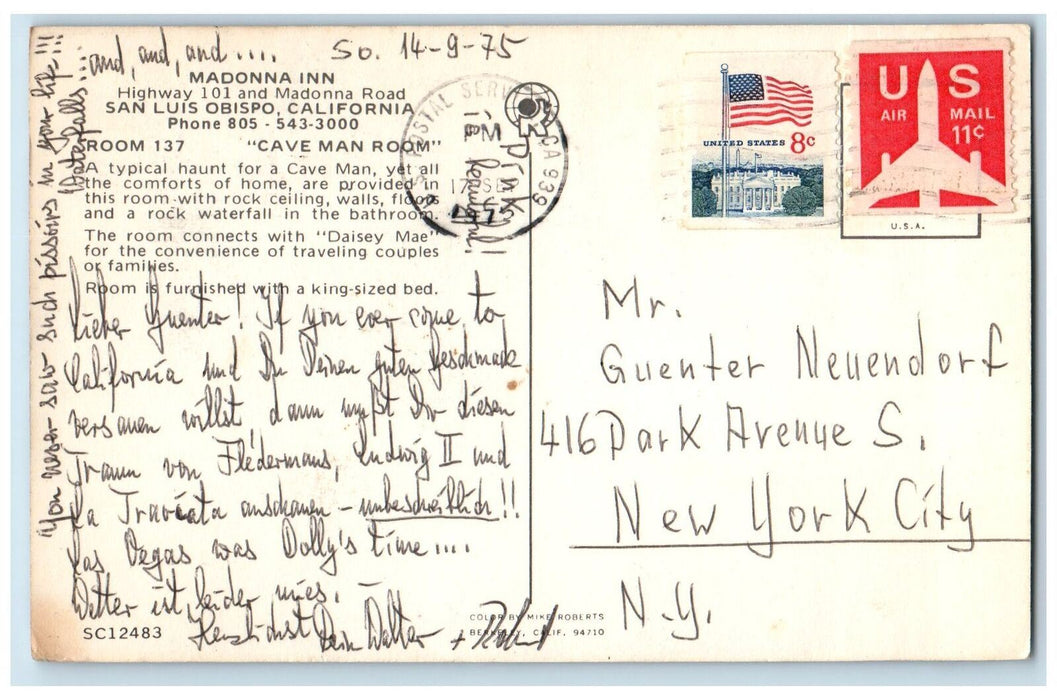 and, and, and .... So. 14-9-75
MADONNA INN
Highway 101 and Madonna Road
SAN LUIS OBISPO, CALIFORNIA
Phone 805 - 543-3000
ROOM 137 "CAVE MAN ROOM"
A typical haunt for a Cave Man, yet all
the comforts of home, are provided in
this room with rock ceiling, walls, floors
and a rock waterfall in the bathroom.
The room connects with "Daisey Mae"
for the convenience of traveling couples
or families.
Room is furnished with a king-sized bed.
Lieber Guenter! If you ever come to
California und Du Deinen guten Geschmack
versauen willst, dann mußt Du diesen
Traum von Fledermaus, Ludwig II und
La Traviata anschauen - unbeschreiblich!!
Las Vegas was Dolly's time....
Wetter ist leider mies.
Herzlichst Dein Walter + Robert
"You never saw such pissoirs in your life!!!
Waterfalls...
Pink
is beautiful!
POSTAL SERVICE
CA 939
PM
17 SE
1975
UNITED STATES 8c
US
AIR MAIL
11¢
U.S.A.
Mr.
Guenter Neuendorf
416 Park Avenue S.
New York City
N.Y.
COLOR BY MIKE ROBERTS
BERKELEY, CALIF. 94710
SC12483